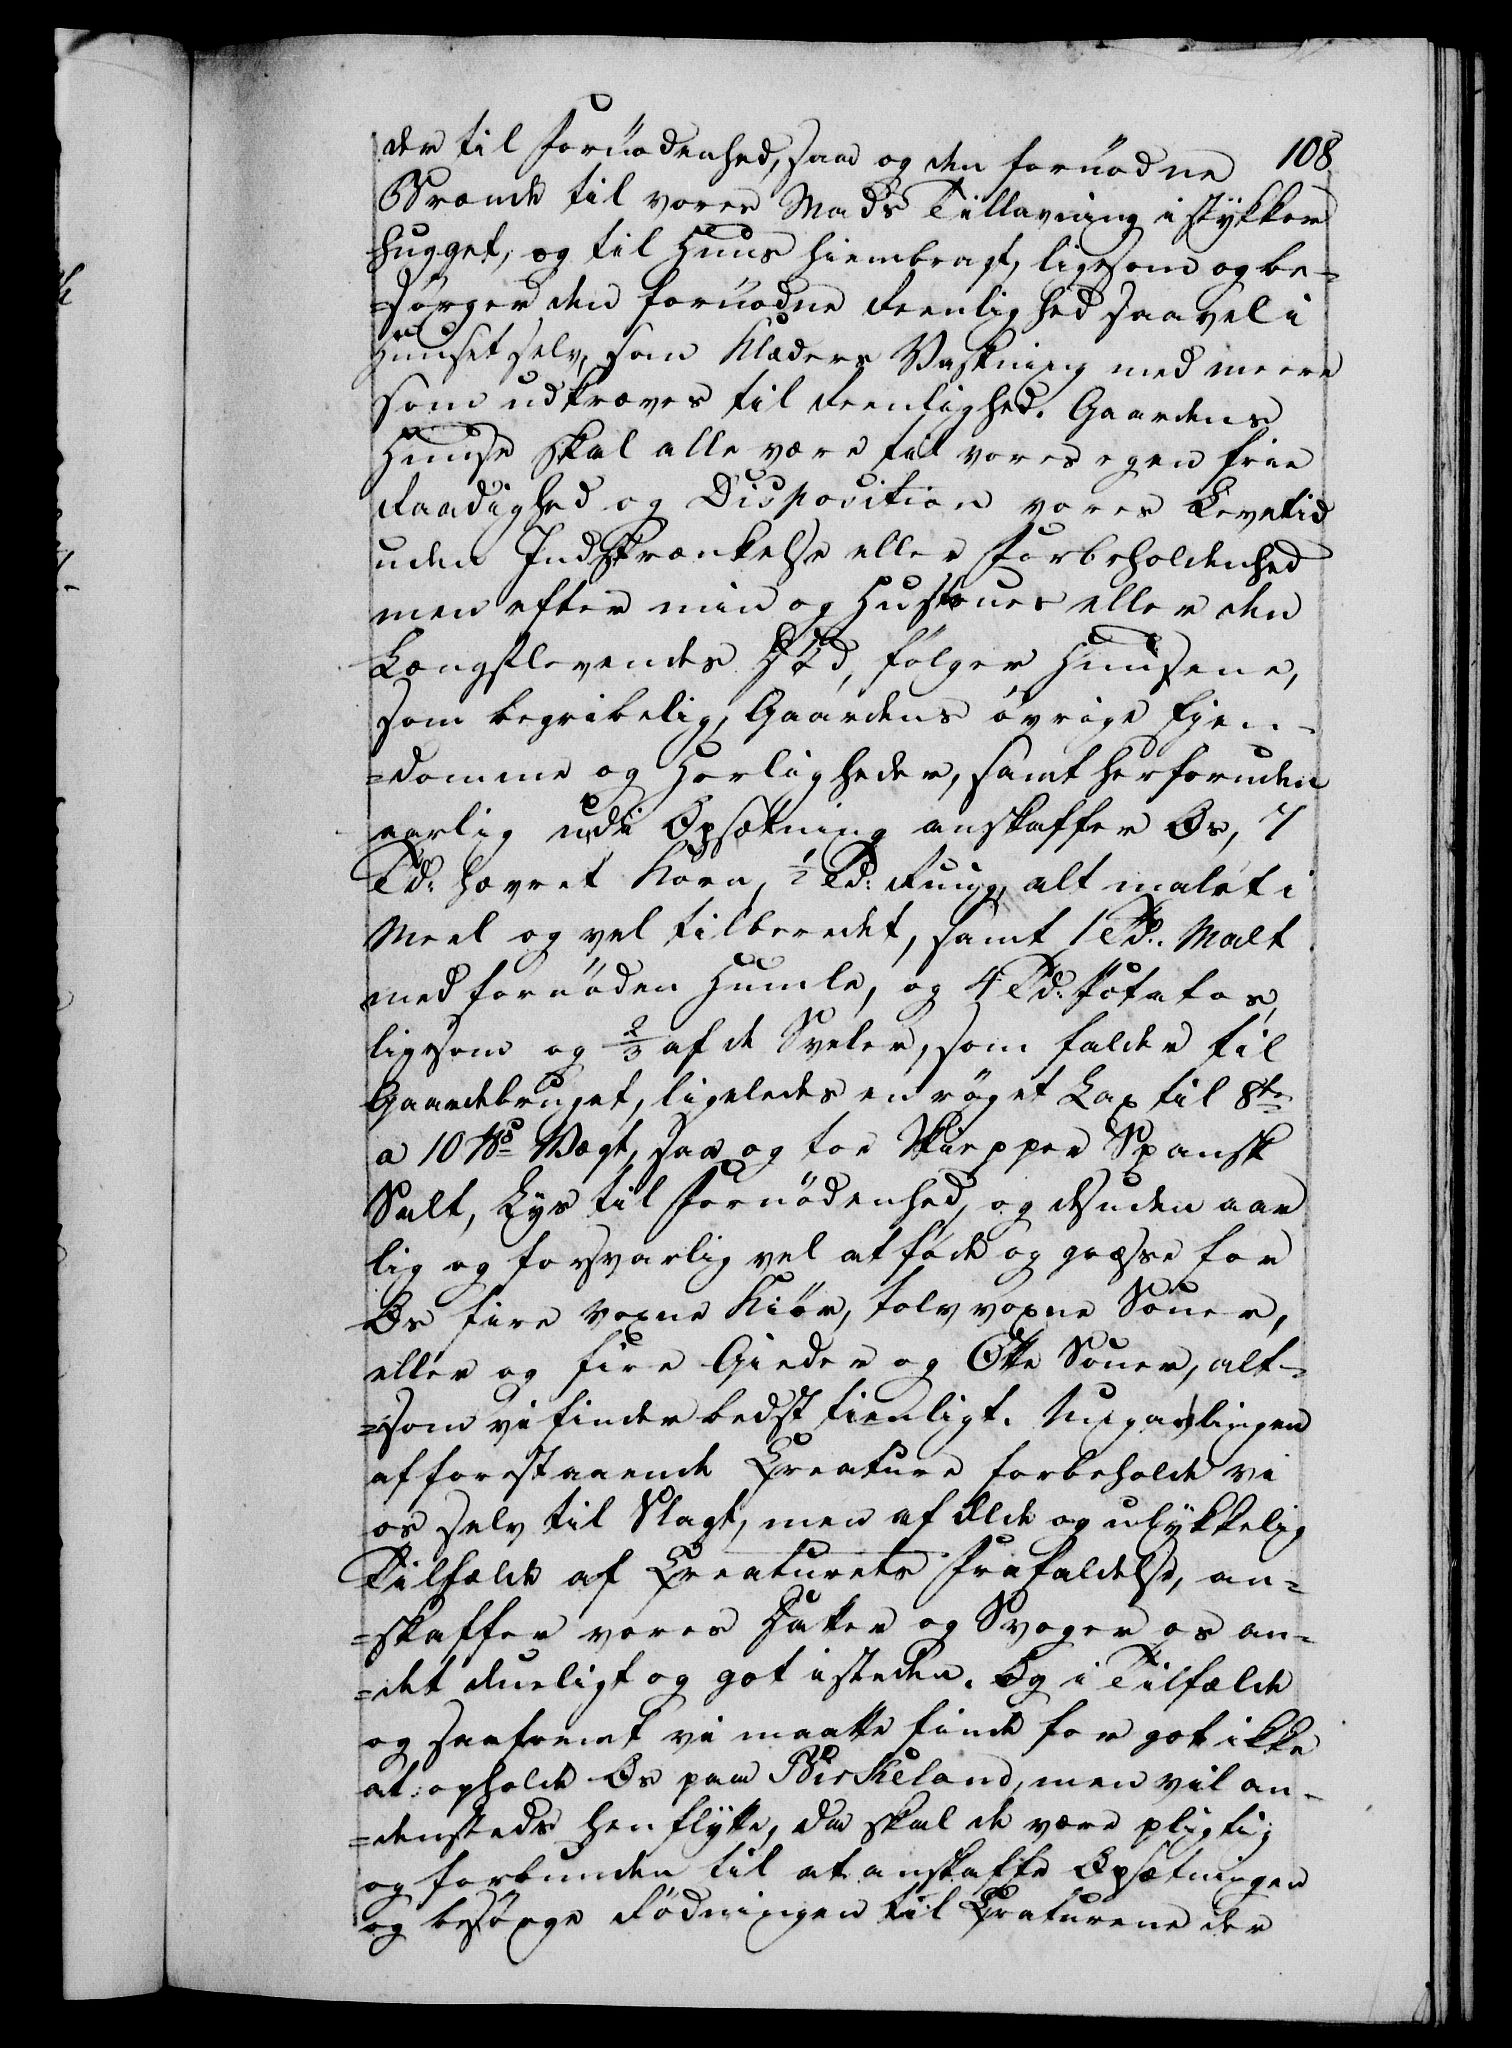 108
der til Fornödenhed, saa og den fornödne
Brænde til vores Mads Tillavning i stykker
hugget, og til Huus hiembragt, ligesom og be-
=sörger den fornödne Reenlighed saavel i
Huuset selv, som Klæders Vaskning med meere
som udkræves til Reenlighed. Gaardens
Huuse skal alle være til vores egen frie
Raadighed og Disposition vores Levetid
uden Indskrænkelse eller Forbeholdenhed
men efter min og Hustrues eller den
Længstlevendes Död, fölger Huusene,
som begribelig, Gaardens övrige Eien-
=domme og Herligheder, samt herforuden
aarlig udi Opsætning anskaffer Os, 7
Td: havret Korn, ½ Td: Ruug, alt malet i
Meel og vel tilberedet, samt 1 Td: Malt
med fornöden Humle, og 4 Td: Potatos,
ligesom og 2/3 af de Sveler, som falder til
Gaardebruget, ligeledes en röget Lax til 8te
a 10 ℔ Vægt, saa og toe Skiepper Spansk
Salt, Lys til Fornödenhed, og desuden aar
lig og forsvarlig vel at föde og græsse for
Os fire voxne Kiör, tolv voxne Souer,
eller og fire Gieder og Otte Souer, alt-
=som vi finder bedst tienligt. Ungavlingen
af forestaaende Creature forbeholde vi
os selv til Slagt, men af Ælde og ulykkelig
Tilfælde af Creaturets Frafaldelse, an-
=skaffer vores Datter og Svoger os an-
=det dueligt og got isteden. Og i Tilfælde
og saafremt vi maatte finde for got ikke
at opholde Os paa Birkeland, men vil an-
=densteds henflytte, da skal de være pligtig
og forbunden til at anskaffe Opsætningen
og besörge Födningen til Creaturene der